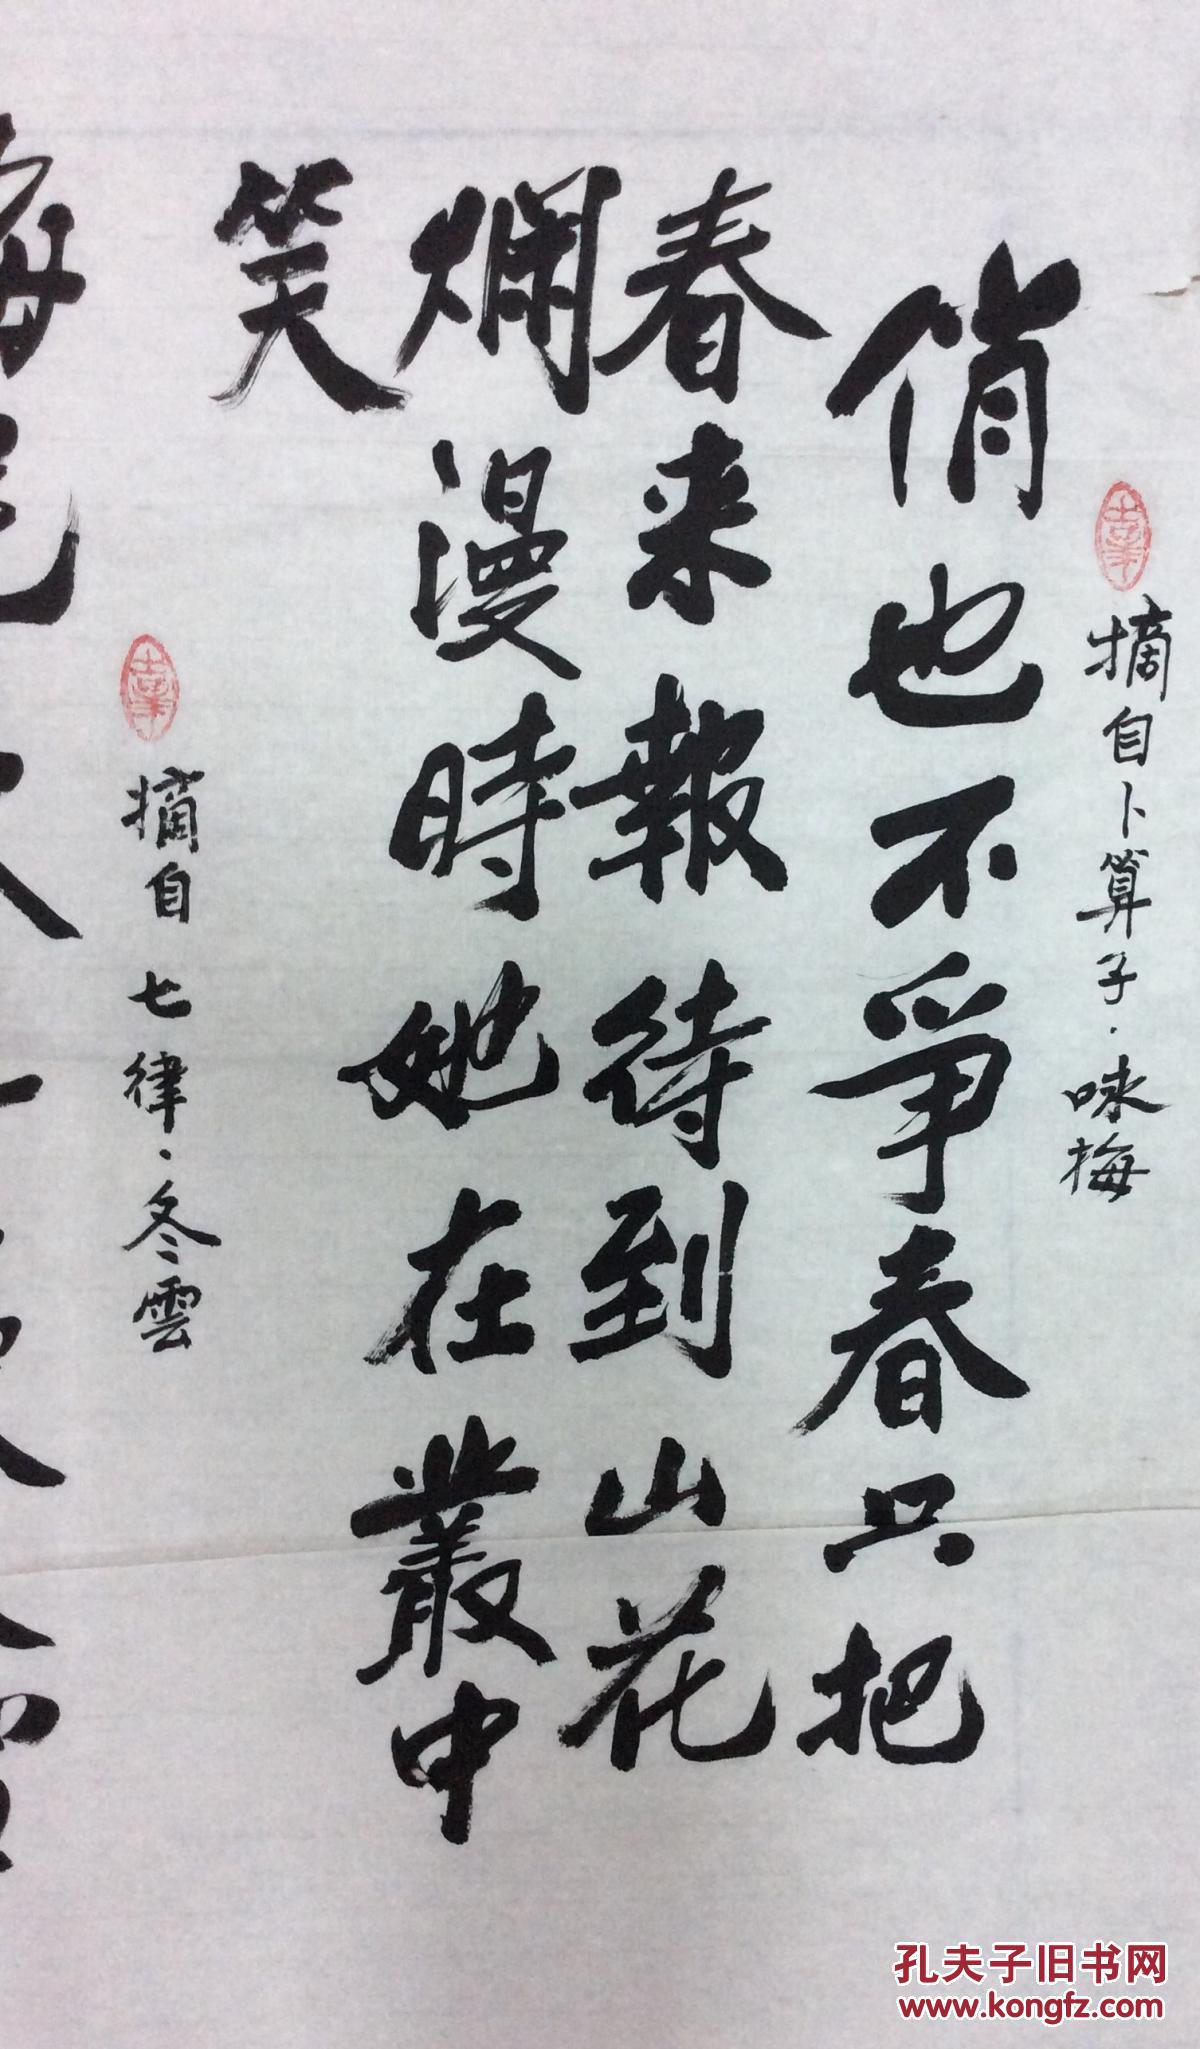 摘自卜算子·咏梅
俏也不爭春只把
春来報待到山花
爛漫時她在叢中
笑
摘自七律·冬雲
孔夫子旧书网
www.kongfz.com